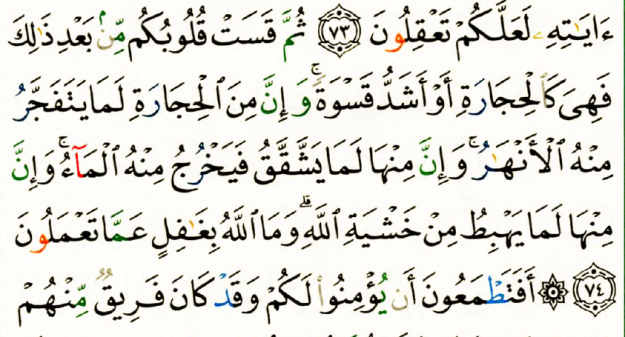 ءَايَٰتِهِۦ لَعَلَّكُمْ تَعْقِلُونَ ﴿٧٣﴾ ثُمَّ قَسَتْ قُلُوبُكُم مِّنۢ بَعْدِ ذَٰلِكَ
فَهِىَ كَٱلْحِجَارَةِ أَوْ أَشَدُّ قَسْوَةً ۚ وَإِنَّ مِنَ ٱلْحِجَارَةِ لَمَا يَتَفَجَّرُ
مِنْهُ ٱلْأَنْهَٰرُ ۚ وَإِنَّ مِنْهَا لَمَا يَشَّقَّقُ فَيَخْرُجُ مِنْهُ ٱلْمَآءُ ۚ وَإِنَّ
مِنْهَا لَمَا يَهْبِطُ مِنْ خَشْيَةِ ٱللَّهِ ۗ وَمَا ٱللَّهُ بِغَٰفِلٍ عَمَّا تَعْمَلُونَ
﴿٧٤﴾ ۞ أَفَتَطْمَعُونَ أَن يُؤْمِنُوا۟ لَكُمْ وَقَدْ كَانَ فَرِيقٌ مِّنْهُمْ